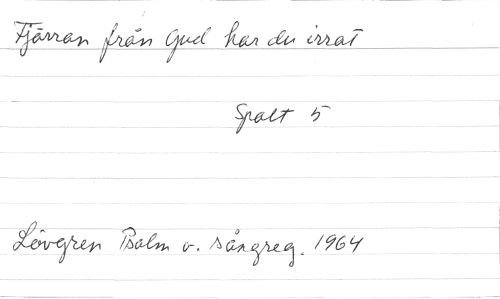 Fjärran från Gud har du irrat
Spalt 5
Lövgren Psalm o. sångreg. 1964